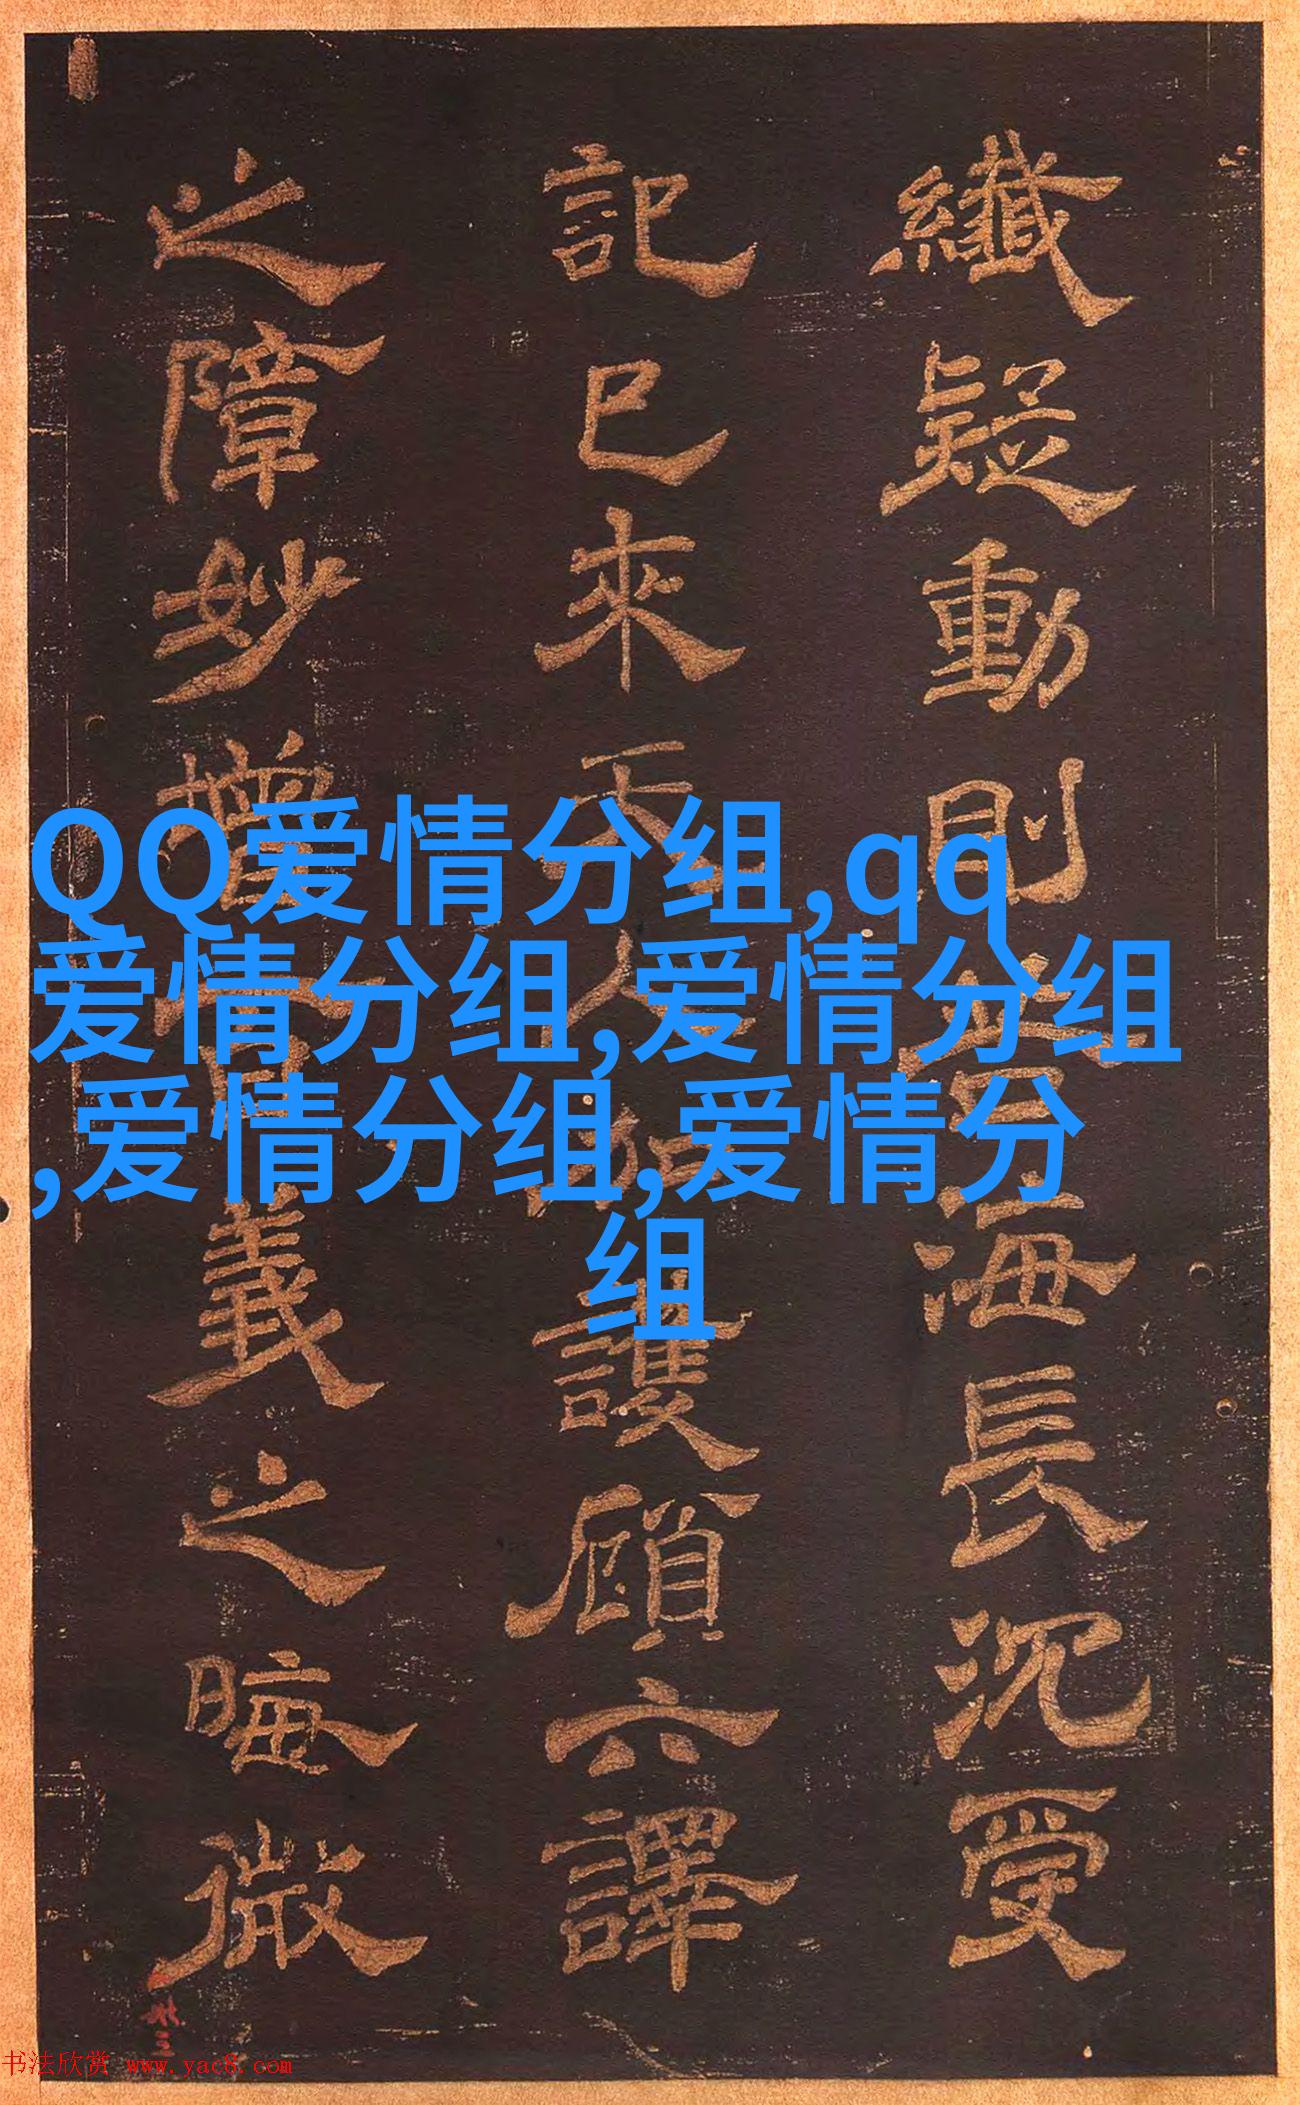 纖疑動則海長沉受
記已來天人加護顧六譯
之障妙增義之晦微
QQ爱情分组,qq
爱情分组,爱情分组
,爱情分组,爱情分
组
书法欣赏 www.yac8.com